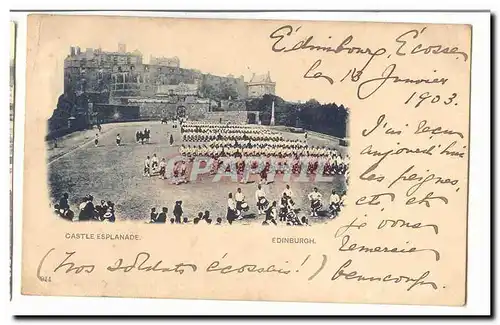 Édimbourg, Écosse
le 16 Janvier
1903.
J'ai reçu
aujourd'hui
les peignes,
et je vous
remercie
beaucoup
CPArama
CASTLE ESPLANADE.
EDINBURGH.
(Nos soldats écossais!)